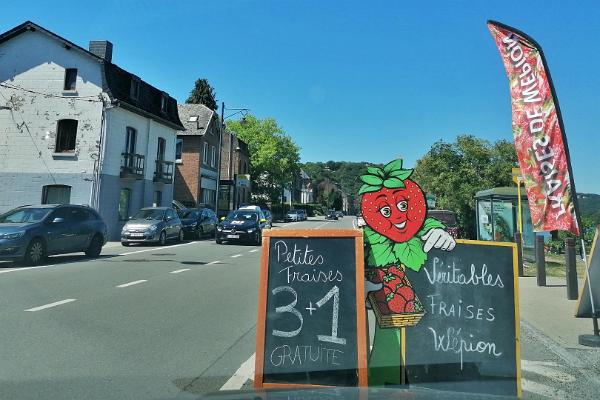 Petites
Fraises
3+1
GRATUITE
Véritables
FRAISES
Wépion
FRAISES DE WÉPION